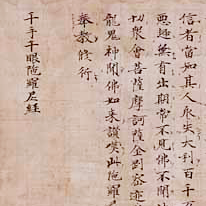 信者當知其人永失大利百千
惡趣無有出期常不見佛不聞
切衆會菩薩摩訶薩金剛密迹
龍鬼神聞佛如來讚嘆此陁羅尼
奉教修行
千手千眼陁羅尼經